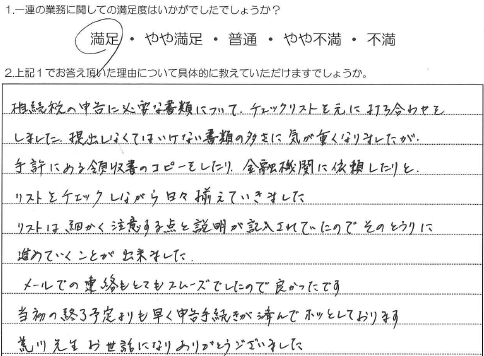 1.一連の業務に関しての満足度はいかがでしたでしょうか？
満足 ・ やや満足 ・ 普通 ・ やや不満 ・ 不満
2.上記1でお答え頂いた理由について具体的に教えていただけますでしょうか。
相続税の申告に必要な書類について、チェックリストを元に打ち合わせを
しました。提出しなくてはいけない書類の多さに気が重くなりましたが、
手許にある領収書のコピーをしたり、金融機関に依頼したりと、
リストをチェックしながら日々揃えていきました
リストは細かく注意する点と説明が記入されていたので そのとうりに
進めていくことが出来ました
メールでの連絡もとてもスムーズでしたので良かったです
当初の終了予定よりも早く申告手続きが済んでホッとしております
荒川先生お世話になりありがとうございました